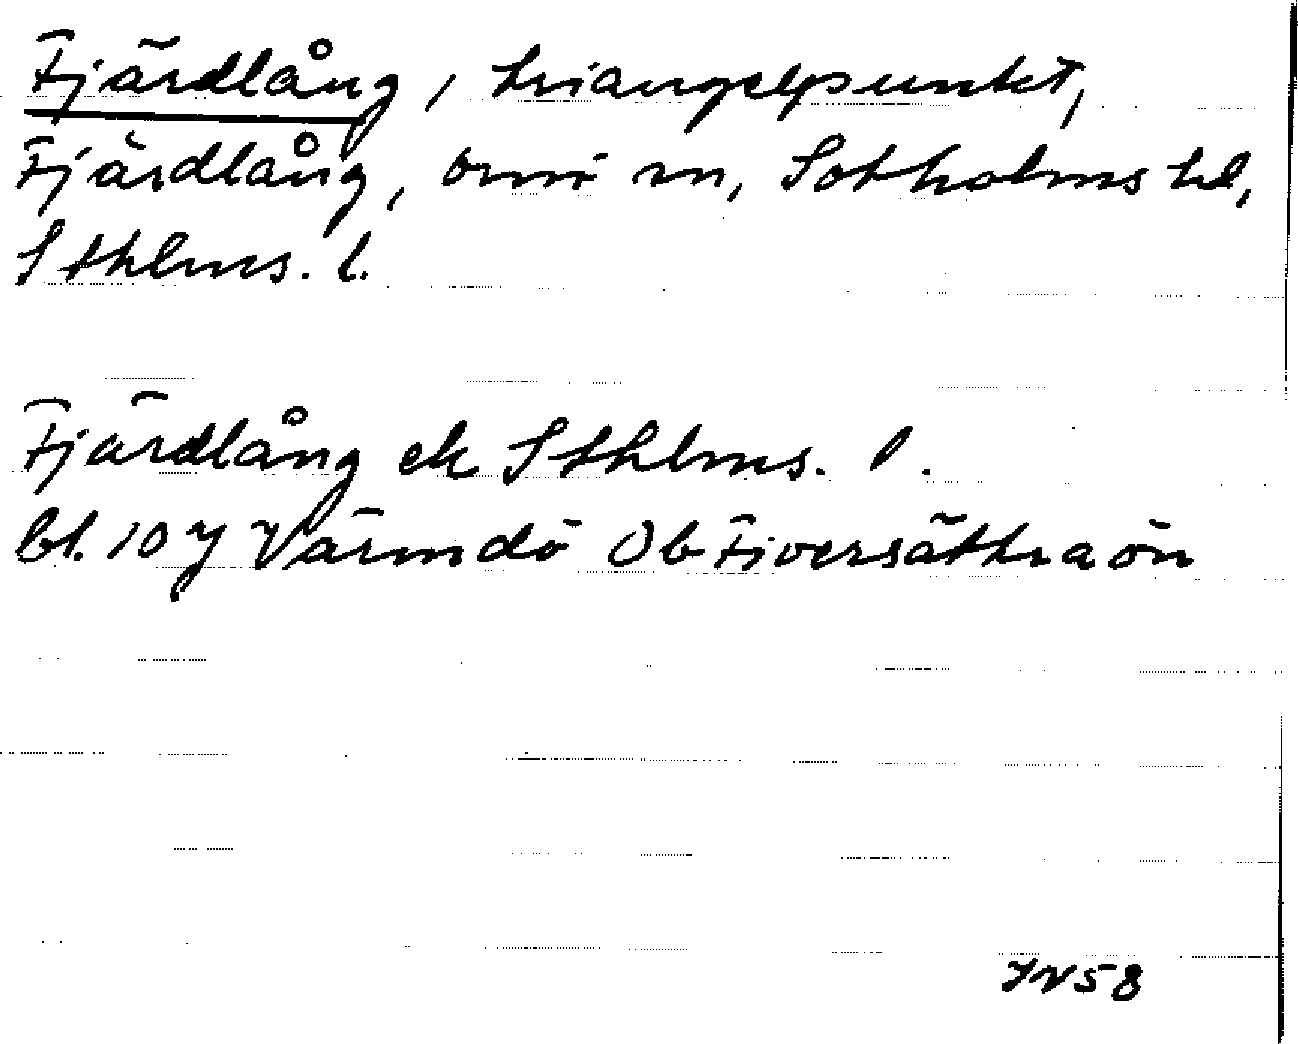 Fjärdlång, triangelpunkt,
Fjärdlång, omr m, Sotholms hd,
Sthlms. l.
Fjärdlång ek Sthlms. l.
bl. 10 J Värmdö Ob Fiversättraön
JN 58